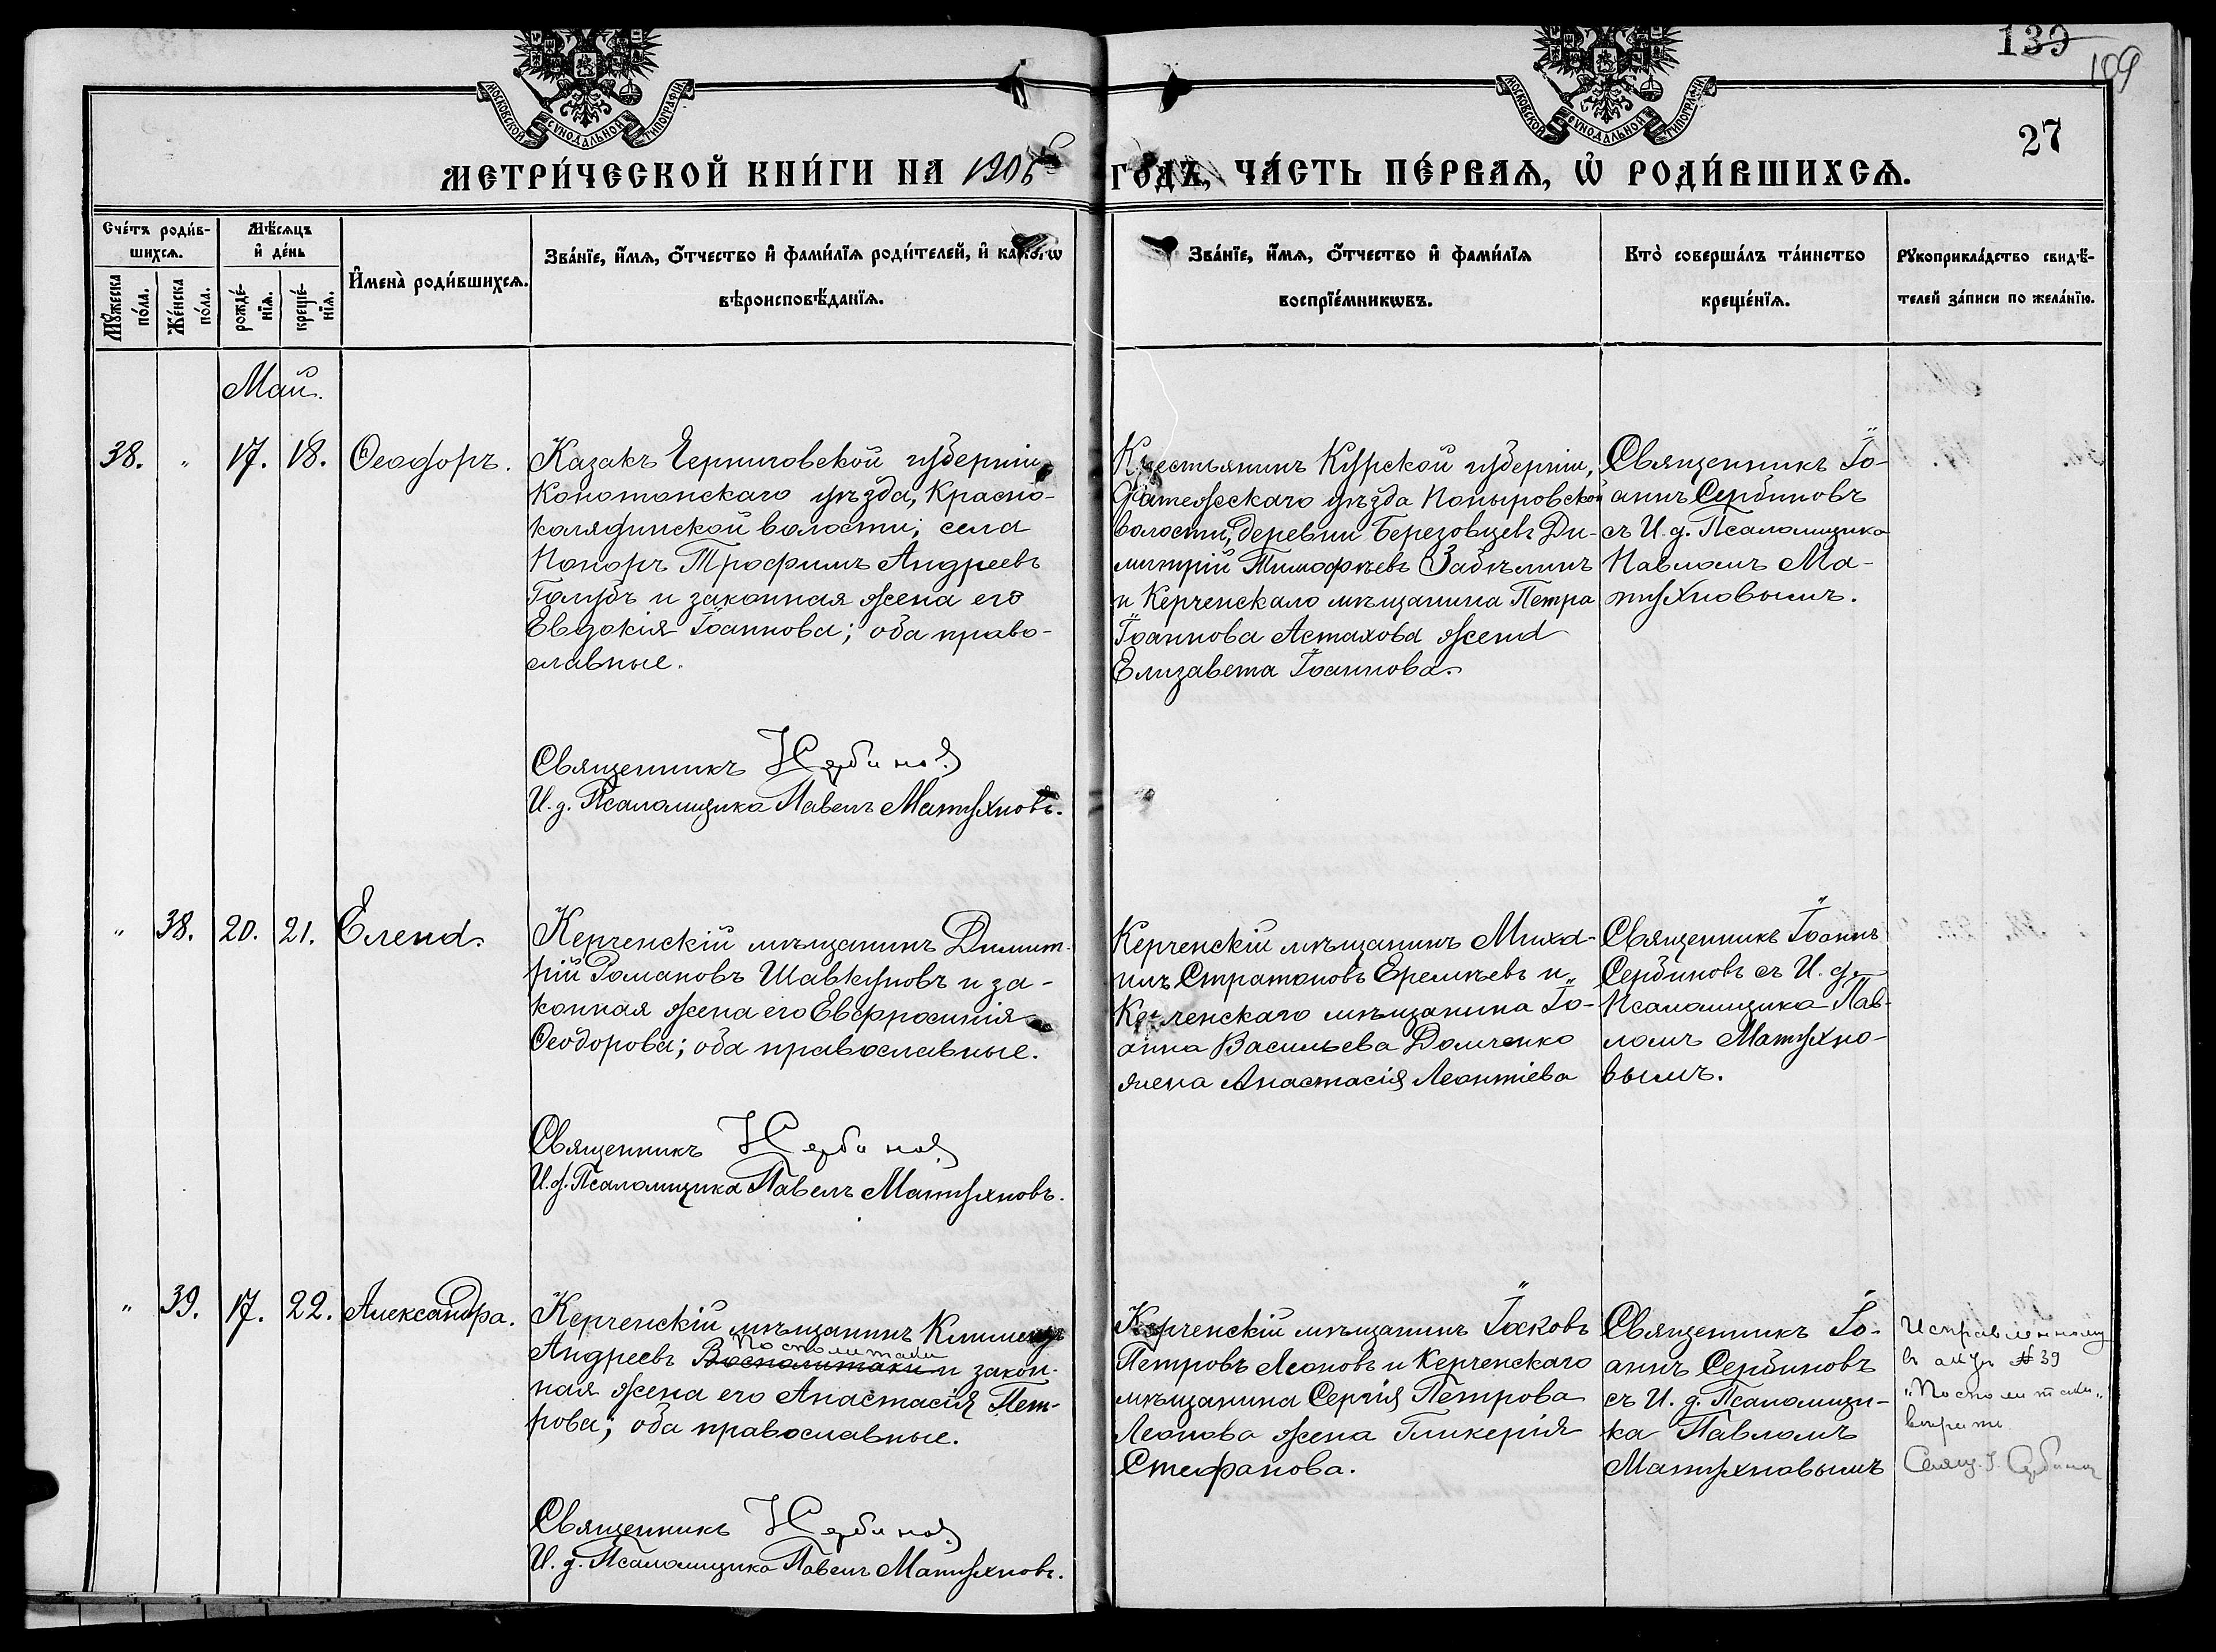 139
109
27
МОСКОВСКОЙ СУНОДАЛЬНОЙ ТИПОГРАФІИ
МОСКОВСКОЙ СУНОДАЛЬНОЙ ТИПОГРАФІИ
МЕТРИ́ЧЕСКОЙ КНИ́ГИ НА 1906 ГО́ДЪ, ЧА́СТЬ ПЕ́РВАѦ, Ѡ҆ РОДИ́ВШИХСѦ.
Сче́тъ роди́в-
шихсѧ.
Мꙋ́жеска
по́ла.
Же́нска
по́ла.
Мѣ́сѧцъ
и҆ де́нь
рожде́-
нїѧ.
креще́-
нїѧ.
И҆мена̀ роди́вшихсѧ.
Зва́нїе, и҆́мѧ, ѻ҆́тчество и҆ фами́лїѧ роди́телей, и҆ како́гѡ
вѣроисповѣ́данїѧ.
Зва́нїе, и҆́мѧ, ѻ҆́тчество и҆ фами́лїѧ
воспрїе́мникѡвъ.
Кто̀ соверша́лъ та́инство
креще́нїѧ.
Рꙋкоприкла́дство свидѣ́-
телей за́писи по жела́нїю.
Май.
38. „ 17. 18. Ѳеодоръ.
Казакъ Черниговской губерніи
Конотопскаго уѣзда, Красно-
колядинской волости, села
Попоръ Трофимъ Андреевъ
Голубъ и законная жена его
Евдокія Іоаннова; оба право-
славные.
Священникъ І Сербиновъ
И. д. Псаломщика Павелъ Матухновъ.
Крестьянинъ Курской губерніи,
Фатежскаго уѣзда Поныровской
волости, деревни Березовцевъ Ди-
митрій Тимофѣевъ Забѣлинъ
и Керченскаго мѣщанина Петра
Іоаннова Астахова жена
Елизавета Іоаннова.
Священникъ Іо-
аннъ Сербиновъ
съ И. д. Псаломщика
Павломъ Ма-
тухновымъ.
„ 38. 20. 21. Елена.
Керченскій мѣщанинъ Димит-
рій Романовъ Шавкуновъ и за-
конная жена его Евфросинія
Ѳеодорова; оба православные.
Священникъ І Сербиновъ
И. д. Псаломщика Павелъ Матухновъ.
Керченскій мѣщанинъ Миха-
илъ Стратоновъ Еремѣевъ и
Керченскаго мѣщанина Іо-
анна Васильева Домченко
жена Анастасія Леонтіева
Священникъ Іоаннъ
Сербиновъ съ И. д.
Псаломщика Пав-
ломъ Матухно-
вымъ.
„ 39. 17. 22. Александра.
Керченскій мѣщанинъ Климентъ
Посполитаки
Андреевъ Восполитаки и закон-
ная жена его Анастасія Пет-
рова; оба православные.
Священникъ І Сербиновъ
И. д. Псаломщика Павелъ Матухновъ.
Керченскій мѣщанинъ Іаковъ
Петровъ Леоновъ и Керченскаго
мѣщанина Сергія Петрова
Леонова жена Гликерія
Стефанова.
Священникъ Іо-
аннъ Сербиновъ
съ И. д. Псаломщи-
ка Павломъ
Матухновымъ
Исправленному
въ № 39
„Посполитаки„
вѣрить
Свящ. І. Сербиновъ